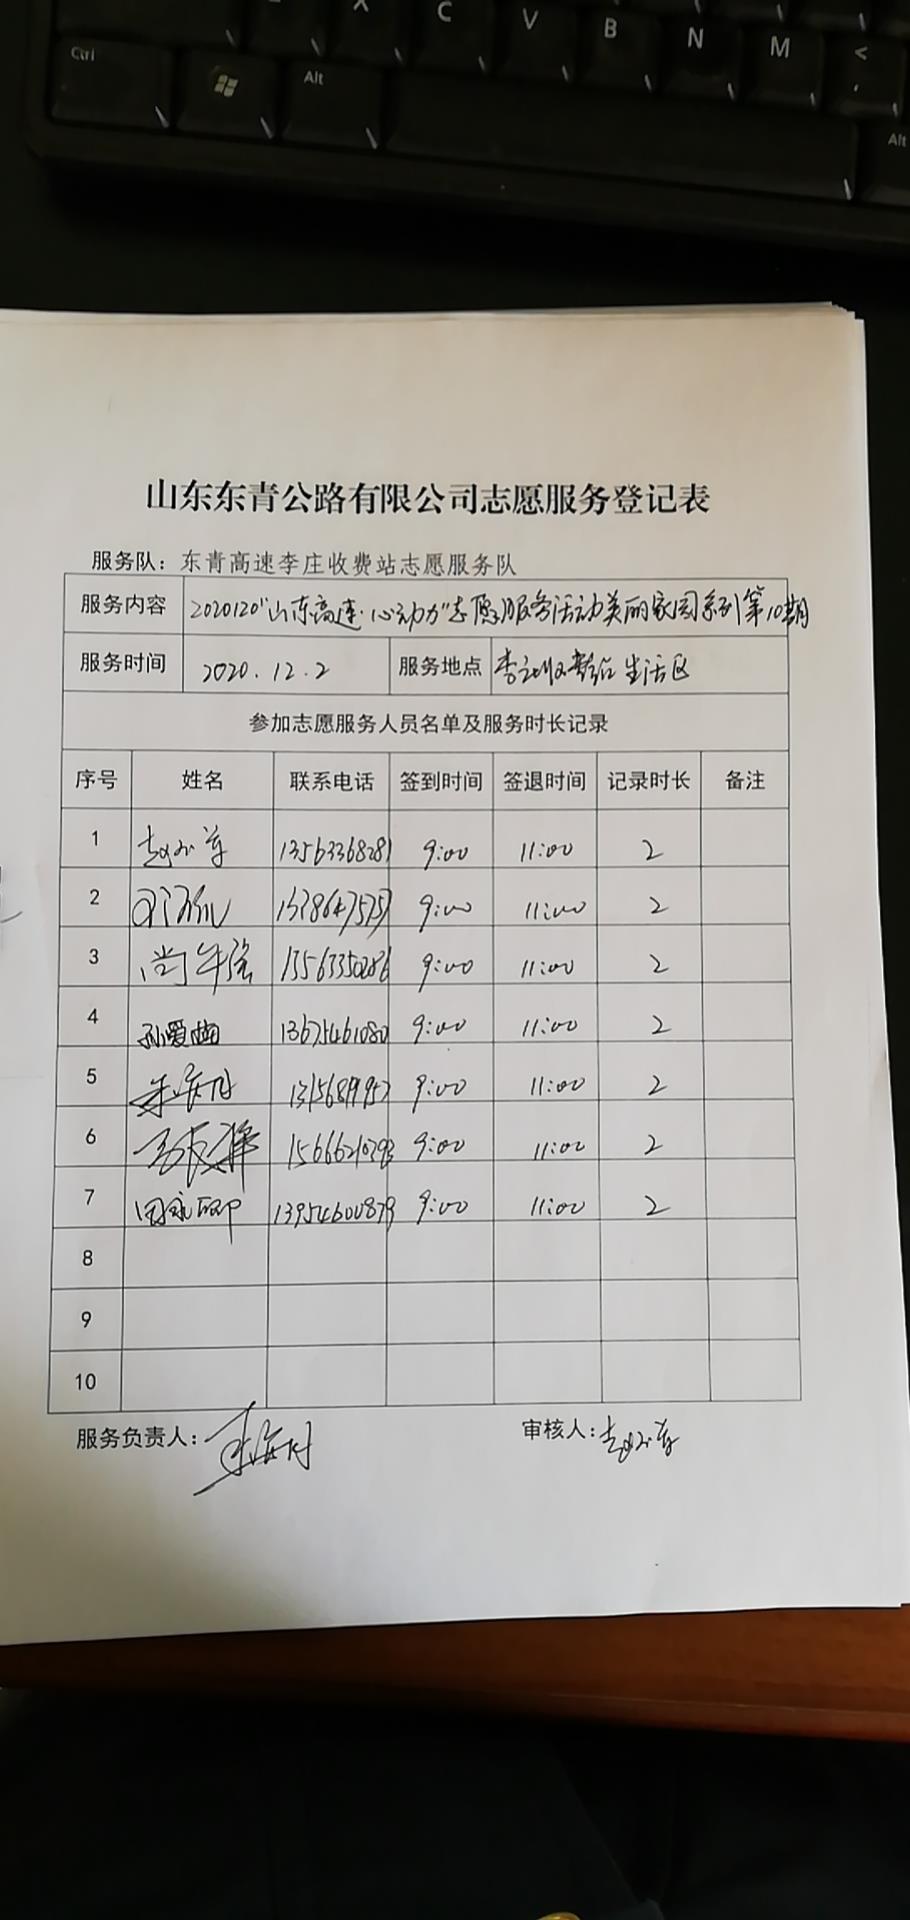 X C V B N M <
Ctrl Alt Alt
山东东青公路有限公司志愿服务登记表
服务队：东青高速李庄收费站志愿服务队
服务内容 2020120"山东高速·心动力"志愿服务活动美丽家园系列第10期
服务时间 2020.12.2 服务地点 李庄收费站生活区
参加志愿服务人员名单及服务时长记录
序号 姓名 联系电话 签到时间 签退时间 记录时长 备注
1 13563368281 9:00 11:00 2
2 9:00 11:00 2
3 13563350286 9:00 11:00 2
4 13675461080 9:00 11:00 2
5 9:00 11:00 2
6 9:00 11:00 2
7 13954600879 9:00 11:00 2
8
9
10
服务负责人： 审核人：